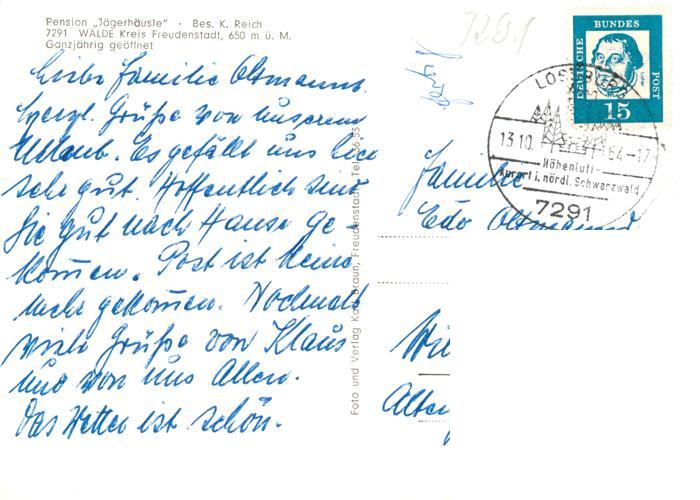 Pension „Jägerhäusle" · Bes. K. Reich
7291 WÄLDE Kreis Freudenstadt, 650 m ü. M.
Ganzjährig geöffnet
Liebe Familie Oltmanns.
herzl. Grüße von unserem
Urlaub. Es gefällt uns hier
sehr gut. Hoffentlich sind
Sie gut nach Hause ge-
kommen. Post ist keine
mehr gekommen. Nochmals
viele Grüße von Klaus
und von uns Allen.
Das Wetter ist schön.
Foto und Verlag Braun, Freudenstadt, Tel.
7291
DEUTSCHE BUNDES POST
15
LOSSBURG
13.10. 64-17
Höhenluft-
Kurort i. nördl. Schwarzwald
7291
Familie
Edo Oltmanns
Wil
Alten